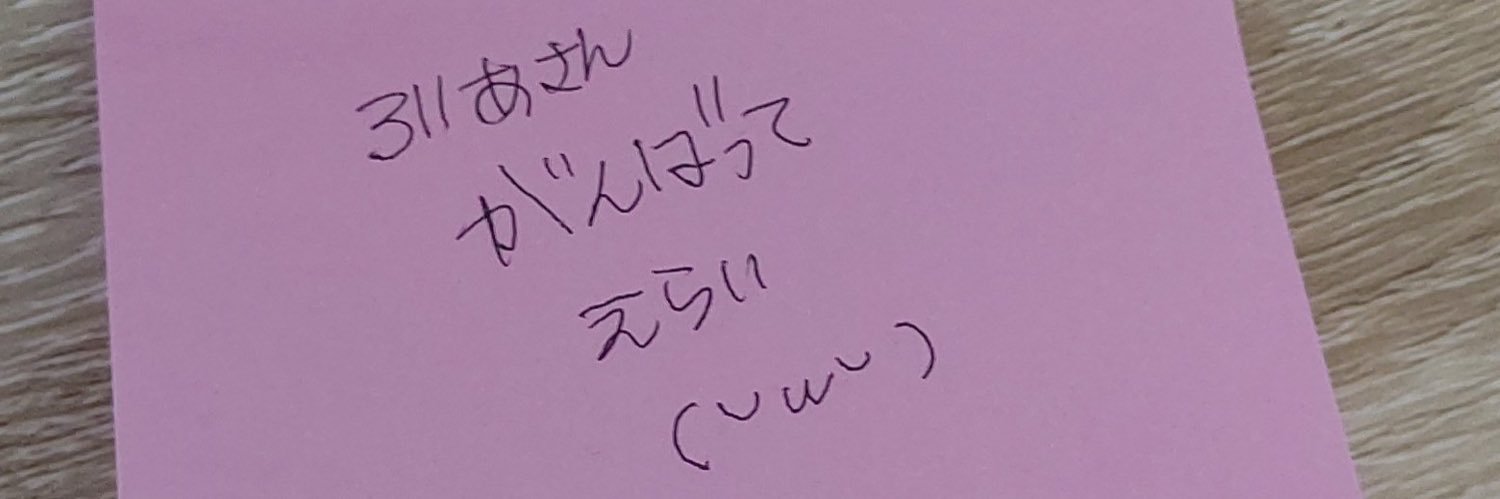 311あさん
がんばって
えらい
(˘ω˘)